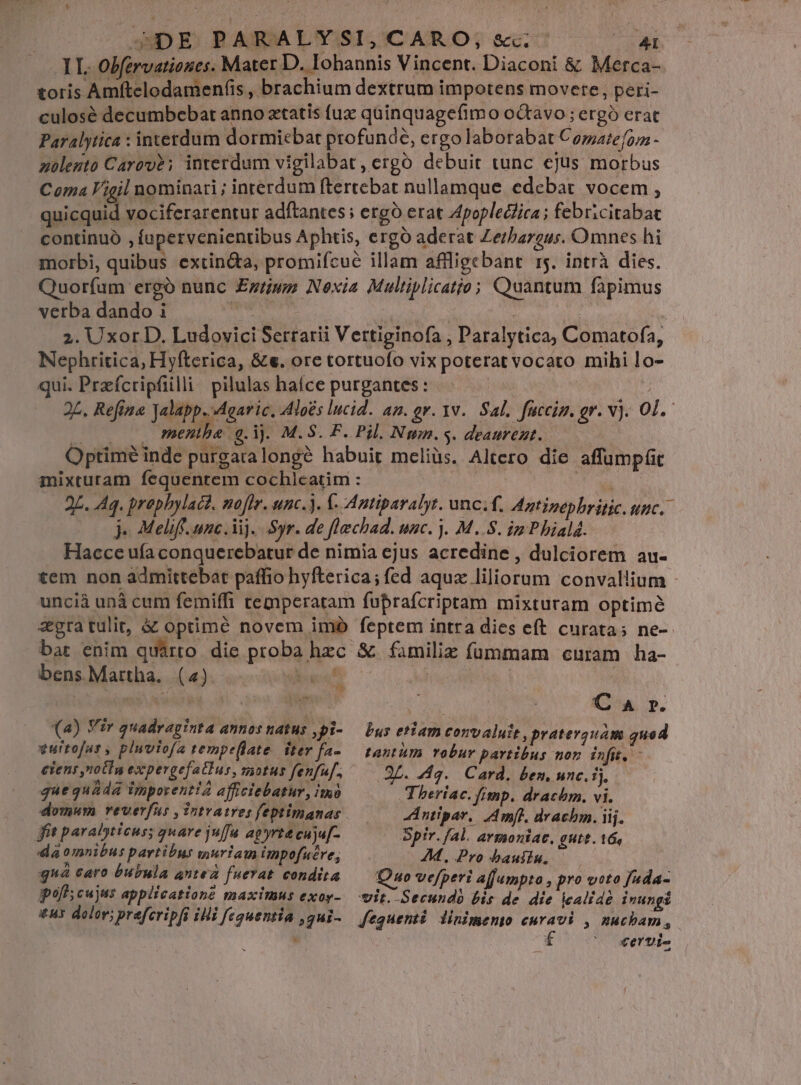 DE PARALYSI, CARO, &c. 41
II. Obſervationes. Mater D. Iohannis Vincent. Diaconi & Merca-
toris Amſtelodamenſis, brachium dextrum impotens movere, peri-
culosè decumbebat anno ætatis ſuæ quinquageſimo octavo; ergò erat
Paralytica: interdum dormiebat profundè, ergo laborabat Comate ſom-
nolento Carovè; interdum vigilabat, ergò debuit tunc ejus morbus
Coma Vigil nominari; interdum ſtertebat nullamque edebat vocem,
quicquid vociferarentur adſtantes; ergò erat Apoplectica; febricitabat
continuò, ſupervenientibus Aphtis, ergò aderat Lethargus. Omnes hi
morbi, quibus extincta, promiſcuè illam affligebant 15. intrà dies.
Quorſum ergò nunc Entium Noxia Multiplicatio; Quantum ſapimus
verba dando i
2. Uxor D. Ludovici Serrarii Vertiginoſa, Paralytica, Comatoſa,
Nephritica, Hyſterica, &c. ore tortuoſo vix poterat vocato mihi lo-
qui. Præſcripſi illi pilulas haſce purgantes:
℞. Reſinæ Jalapp. Agaric. Aloës lucid. an. gr. iv. Sal. ſuccin. gr. vj. Ol.
menthæ g. ij. M. S. F. Pil. Num. 5. deaurent.
Optimè inde purgata longè habuit meliùs. Altero die aſſumpſit
mixturam ſequentem cochleatim:
℞. Aq. prophylact. noſtr. unc. j. ſ. Antiparalyt. unc. ſ. Antinephritic. unc.
j. Meliſſ. unc. iij. Syr. de ſtœchad. unc. j. M. S. in Phialâ.
Hacce uſa conquerebatur de nimia ejus acredine, dulciorem au-
tem non admittebat paſſio hyſterica; ſed aquæ liliorum convallium
unciâ unâ cum ſemiſſi temperatam ſupraſcriptam mixturam optimè
ægra tulit, & optimè novem imò ſeptem intra dies eſt curata; ne-
bat enim quarto die proba hæc & familiæ ſummam curam ha-
bens Martha. (a)
CAP.
(a) Vir quadraginta annos natus, pi-
tuitoſus, pluvioſa tempeſtate iter fa-
ciens, noctu expergefactus, motus ſenſuſ-
que quâdâ impotentiâ afficiebatur, imò
domum reverſus, intra tres ſeptimanas
fit paralyticus; quare juſſu agyrtæ cujuſ-
dâ omnibus partibus muriam impoſuêre,
quâ caro bubula anteà fuerat condita
poſt; cujus applicationē maximus exor-
tus dolor; præſcripſi illi ſequentia, qui-
bus etiam convaluit, præterquàm quod
tantùm robur partibus non inſit.
℞. Aq. Card. ben. unc. ij.
Theriac. ſimp. drachm. vi.
Antipar. Amſt. drachm. iij.
Spir. ſal. armoniac. gutt. 16,
M. Pro hauſtu.
Quo veſperi aſſumpto, pro voto ſuda-
vit. Secundò bis de die calidè inungi
ſequenti linimento curavi, nucham,
f cervi-